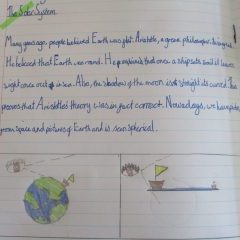 The Solar System
Many years ago, people believed Earth was flat. Aristotle, a greek philosopher, disagreed.
He believed that Earth was round. He explained that once a ship sets sail it leaves
sight once out at sea. Also, the shadow of the moon is not straight its curved. This
proves that Aristotle's theory was in fact correct. Nowadays, we have
from space and pictures of Earth and is seen spherical.